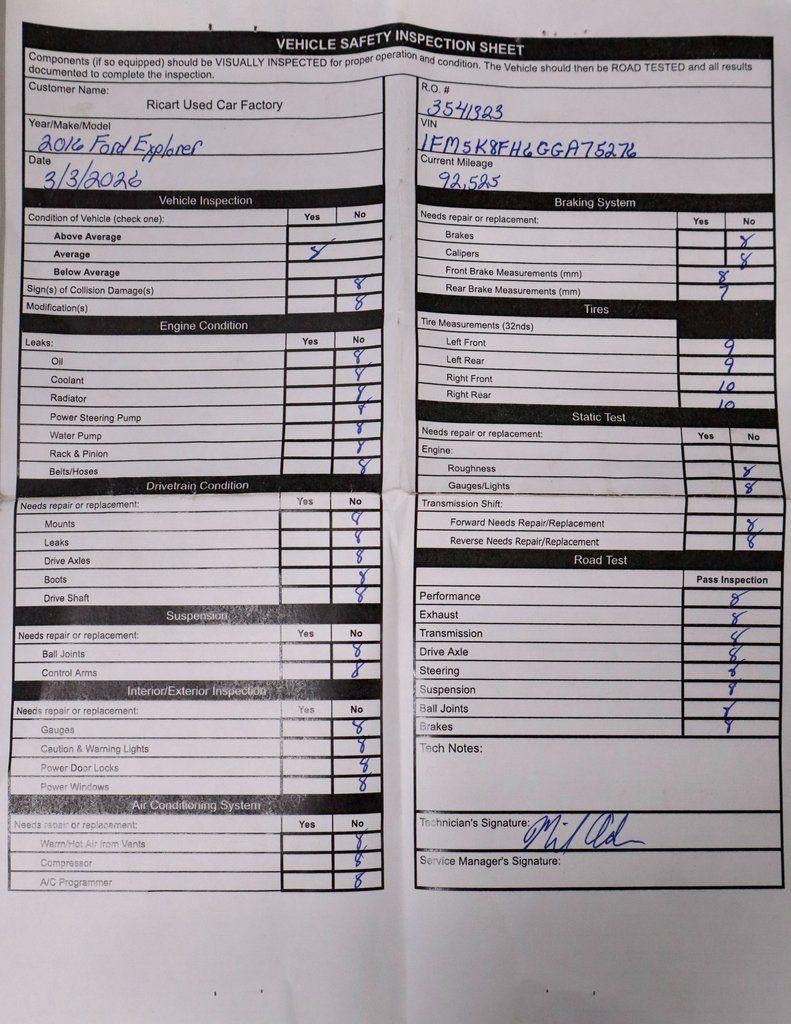 VEHICLE SAFETY INSPECTION SHEET
Components (if so equipped) should be VISUALLY INSPECTED for proper operation and condition. The Vehicle should then be ROAD TESTED and all results
documented to complete the inspection.
Customer Name:
Ricart Used Car Factory
Year/Make/Model
2016 Ford Explorer
Date
3/3/2026
Vehicle Inspection
Condition of Vehicle (check one): Yes No
Above Average
Average 8
Below Average
Sign(s) of Collision Damage(s) 8
Modification(s) 8
Engine Condition
Leaks: Yes No
Oil 8
Coolant 8
Radiator 8
Power Steering Pump 8
Water Pump 8
Rack & Pinion 8
Belts/Hoses 8
Drivetrain Condition
Needs repair or replacement: Yes No
Mounts 8
Leaks 8
Drive Axles 8
Boots 8
Drive Shaft 8
Suspension
Needs repair or replacement: Yes No
Ball Joints 8
Control Arms 8
Interior/Exterior Inspection
Needs repair or replacement: Yes No
Gauges 8
Caution & Warning Lights 8
Power Door Locks 8
Power Windows 8
Air Conditioning System
Needs repair or replacement: Yes No
Warm/Hot Air from Vents 8
Compressor 8
A/C Programmer 8
R.O. #
3541323
VIN
1FM5K8FH6GGA75276
Current Mileage
92,525
Braking System
Needs repair or replacement: Yes No
Brakes 8
Calipers 8
Front Brake Measurements (mm) 8
Rear Brake Measurements (mm) 7
Tires
Tire Measurements (32nds)
Left Front 9
Left Rear 9
Right Front 10
Right Rear 10
Static Test
Needs repair or replacement: Yes No
Engine:
Roughness 8
Gauges/Lights 8
Transmission Shift:
Forward Needs Repair/Replacement 8
Reverse Needs Repair/Replacement 8
Road Test
Pass Inspection
Performance 8
Exhaust 8
Transmission 8
Drive Axle 8
Steering 8
Suspension 8
Ball Joints 8
Brakes 8
Tech Notes:
Technician's Signature:
Service Manager's Signature: